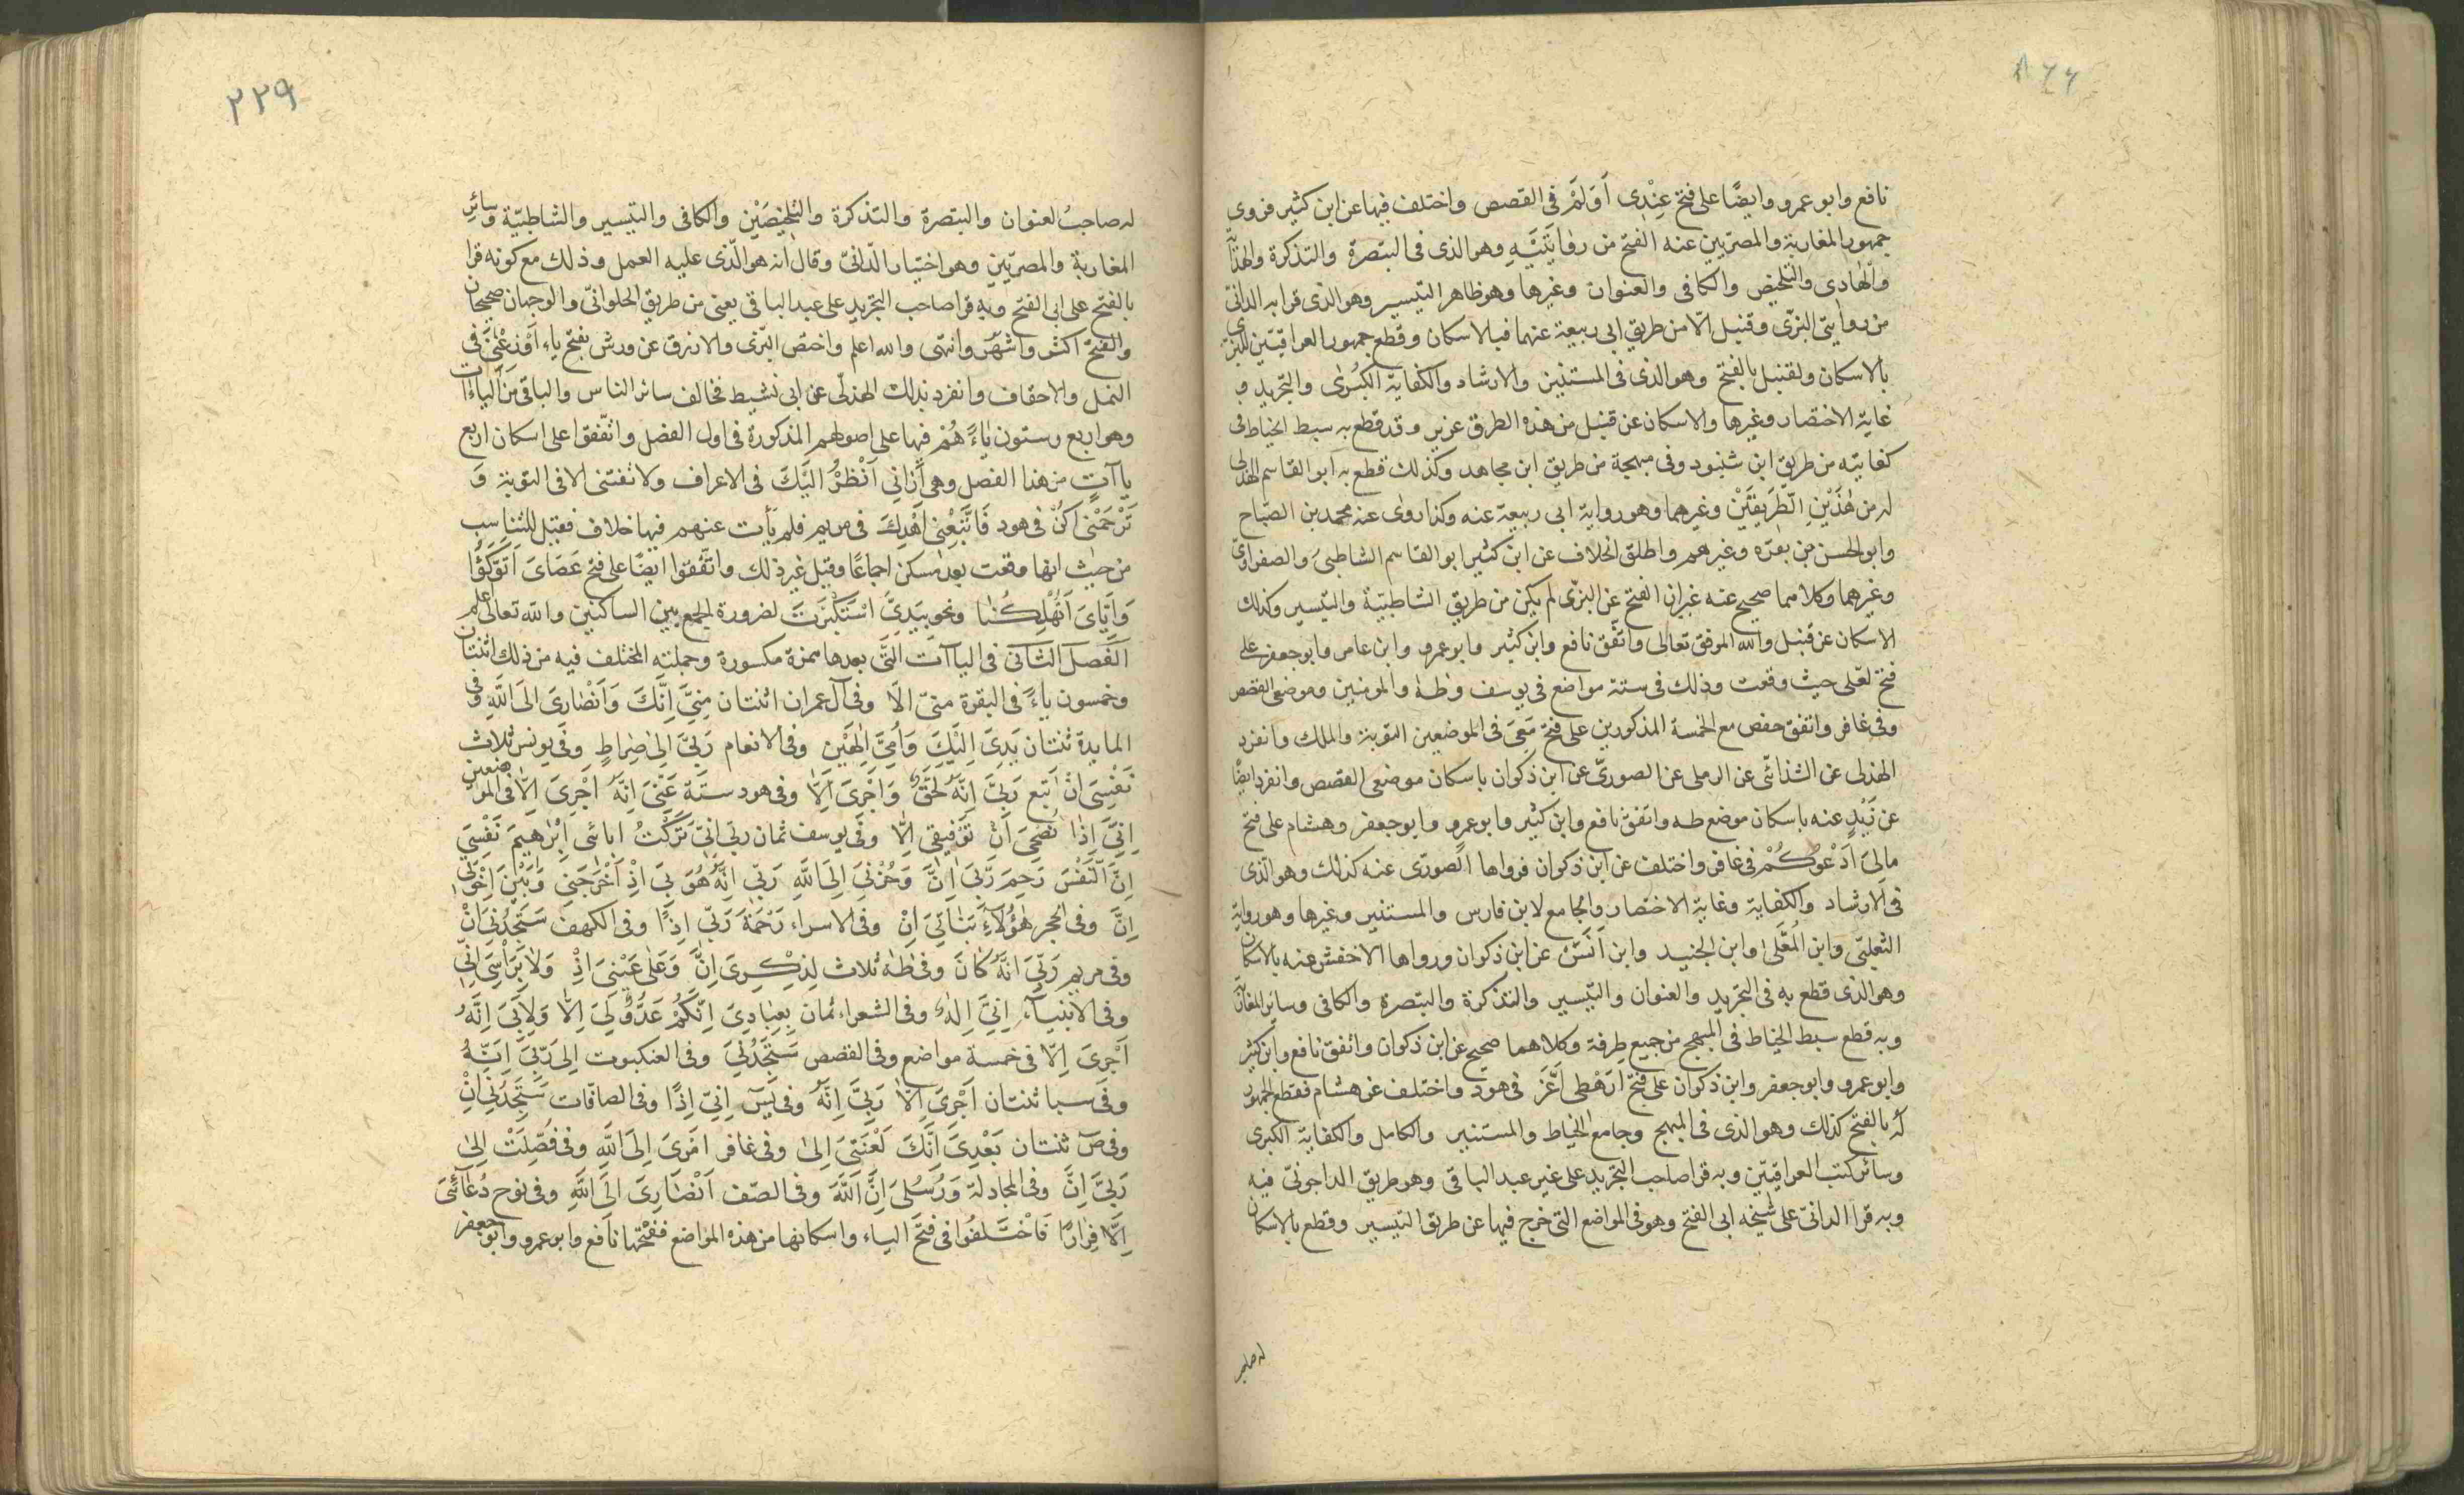 ٨٢٢
نافع وابو عمرو وايضًا على فتح عِنْدِى اَوَلَمْ فى القصص واختلف فيها عن ابن كثير فروى
جمهور المغاربة والمصريين عنه الفتح من روايَتَيْهِ وهو الذى فى التبصرة والتذكرة والهداية
والهادى والتلخيص والكافى والعنوان وغيرها وهو ظاهر التيسير وهو الذى قرا به الدانى
من روايتى البزّى وقنبل الّا من طريق ابى ربيعة عنهما فبالاسكان وقطع جمهور العراقيّين للبزى
بالاسكان ولقنبل بالفتح وهو الذى فى المستنير والارشاد والكفاية الكبرى والتجريد و
غاية الاختصار وغيرها والاسكان عن قنبل من هذه الطرق عزيز وقد قطع به سبط الخياط فى
كفايته من طريق ابن شنبود وفى مبهجة من طريق ابن مجاهد وكذلك قطع به ابو القاسم الهذلى
له من هٰذَيْنِ الطَّرِيقَيْنِ وغيرهما وهو رواية ابى ربيعة عنه وكذا روى عنه محمد بن الصّباح
وابو الحسن بن بقرة وغيرهم واطلق الخلاف عن ابن كثير ابو القاسم الشاطبى والصفراوىّ
وغيرهما وكلاهما صحيح عنه غير ان الفتح عن البزى لم يكن من طريق الشاطبيّة والتيسير وكذلك
الاسكان عن قنبل والله الموفق تعالى واتّفق نافع وابن كثير وابو عمرو وابن عامر وابو جعفر على
فتح لعلّى حيث وقعت وذلك فى ستة مواضع فى يوسف وطه والمومنين وموضعى القصص
وفى غافر واتفق حفص مع الخمسة المذكورين على فتح مَعِىَ فى الموضعين التوبة والملك وانفرد
الهذلى عن الشذائى عن الرملى عن الصورىّ عن ابن ذكوان باسكان موضعى القصص وانفرد ايضًا
عن زَيْدٍ عنه باسكان موضع طه واتفق نافع وابن كثير وابو عمرو وابو جعفر وهشام على فتح
مالِىَ اَدْعُوكُمْ فى غافر واختلف عن ابن ذكوان فرواها الصورى عنه كذلك وهو الذى
فى الارشاد والكفاية وغاية الاختصار والجامع لابن فارس والمستنير وغيرها وهو رواية
الثعلبىّ وابن المُعَلّىٰ وابن الجنيد وابن اَنَسٍ عن ابن ذكوان ورواها الاخفش عنه بالاسكان
وهو الذى قطع به فى التجريد والعنوان والتيسير والتذكرة والتبصرة والكافى وسائر المغاربة
وبه قطع سبط الخياط فى المبهج من جميع طرقه وكلاهما صحيح عن ابن ذكوان واتفق نافع وابن كثير
وابو عمرو وابو جعفر وابن ذكوان على فتح اَرَهْطِى اَعَزَّ فى هود واختلف عن هشام فقطع الجمهور
لَهُ بالفتح كذلك وهو الذى فى المبهج وجامع الخياط والمستنير والكامل والكفاية الكبرى
وسائر كتب العراقيّين وبه قرا صاحب التجريد على غير عبد الباقى وهو طريق الداجونىّ فيه
وبه قرا الدانىّ على شيخه ابى الفتح وهو فى المواضع التى خرج فيها عن طريق التيسير وقطع بالاسكان
له صاحب
٢٢٩
له صاحبُ لعنوان والتبصرة والتذكرة والتلخيصَيْن والكافى والتيسير والشاطبيّة وسائر
المغاربة والمصريّين وهو اختيار الدّانىّ وقال انه هو الّذى عليه العمل وذلك مع كونه قرا
بالفتح على ابى الفتح وبه قرا صاحب التجريد على عبد الباقى يعنى من طريق الحلوانىّ والوجهان صحيحان
والفتح اكثر واشهر وانتهى والله اعلم واختص البزى والازرق عن ورش بفتح ياء اَوْزِعْنِىَ فى
النمل والاحقاف وانفرد بذلك الهذلّى عن ابى نشيط فخالف سائر الناس والباقى من الياءات
وهو اربع وستون ياءً هُمْ فيها على اصولهم المذكورة فى اول الفصل واتّفقوا على اسكان اربع
ياآتٍ من هذا الفصل وهى اَرْنِى اَنْظُرْ اِلَيْكَ فى الاعراف ولا تفتنى الا فى التوبة وَ
تَرْحَمْنِى اَكُنْ فى هود فَاتَّبِعْنِى اَهْدِكَ فى مريم فلم يأت عنهم فيها خلاف فقيل للتناسب
من حيث انها وقعت بعد مسكن اجماعًا وقيل غير ذلك واتّفقوا ايضًا على فتح عَصَاىَ اَتَوَكَّؤُا
وَاِيَّاىَ اَتُهْلِكُنَا ونحو بِيَدِىَّ اسْتَكْبَرْتَ لضرورة الجمع بين الساكنين والله تعالى اعلم
الفَصل الثانى فى الياآت التى بعدها همزة مكسورة وجملته المختلف فيه من ذلك اثنتان
وخمسون ياءً فى البقرة منّى الّا وفى آل عمران اثنتان مِنِّىَ اِنَّكَ وَاَنْصَارِىَ اِلَى اللّٰهِ وفى
المايدة ثنتان يَدِىَ اِلَيْكَ وَاُمِّىَ اِلٰهَيْنِ وفى الانعام رَبِّىَ اِلىٰ صِرَاطٍ وفى يونس ثلاث
نَفْسِىَ اِنْ اَتَّبِع رَبِّىَ اِنَّهُ لَحَقٌّ وَاَجْرِىَ اِلَّا وفى هود ستة عَنِّىَ اِنَّهُ اَجْرِىَ اِلَّا فى الموضعين
اِنِّىَ اِذًا نُصْحِىَ اَنْ تَوْفِيقِى اِلَّا وفى يوسف ثمان ربّى انّى تَرَكْتُ اٰبائى اِبْرٰهِيمَ نَفْسِىَ
اِنَّ النَّفْسَ رَحِمَ رَبِّىَ اِنَّ وَحُزْنِىَ اِلَى اللّٰهِ رَبّىَ اِنَّهُ هُوَ بِىَ اِذْ اَخْرَجَنِى وَبَيْنَ اِخْوَتِى
اِنَّ وفى الحجر هٰؤُلَاءِ بَنَاتِىَ اِنْ وفى الاسراء رَحْمَةَ رَبِّى اِذًا وفى الكهف سَتَجِدُنِىَ اِنْ
وفى مريم رَبِّىَ اِنَّهُ كَانَ وفى طٰهٰ ثلاث لِذِكْرِىَ اِنَّ وَعَلٰى عَيْنِىَ اِذْ وَلَا بِرَأْسِىَ اِنِّى
وفى الانبياء اِنِّىَ اِلٰهٌ وفى الشعراء ثمان بِعِبَادِىَ اِنَّكُمْ عَدُوٌّ لِىَ اِلَّا وَلِاَبِىَ اِنَّهُ
اَجْرِىَ اِلَّا فى خمسة مواضع وفى القصص سَتَجِدُنِىَ وفى العنكبوت اِلىٰ رَبِّىَ اِنَّهُ
وفى سبا ثنتان اَجْرِىَ اِلَّا رَبِّىَ اِنَّهُ وفى يٰسٓ اِنِّىَ اِذًا وفى الصافّات سَتَجِدُنِىَ اِنْ
وفى صٓ ثنتان بَعْدِىَ اِنَّكَ لَعْنَتِىَ اِلىٰ وفى غافر امْرِىَ اِلَى اللّٰهِ وفى فُصِّلَتْ اِلىٰ
رَبِّىَ اِنَّ وفى المجادلة وَرُسُلِىَ اِنَّ اللّٰهَ وفى الصّف اَنْصَارِىَ اِلَى اللّٰهِ وفى نوح دُعَائِىَ
اِلَّا فِرَارًا فَاخْتَلَفُوا فى فتح الياء واسكانها من هذه المواضع ففتحها نافع وابو عمرو وابو جعفر